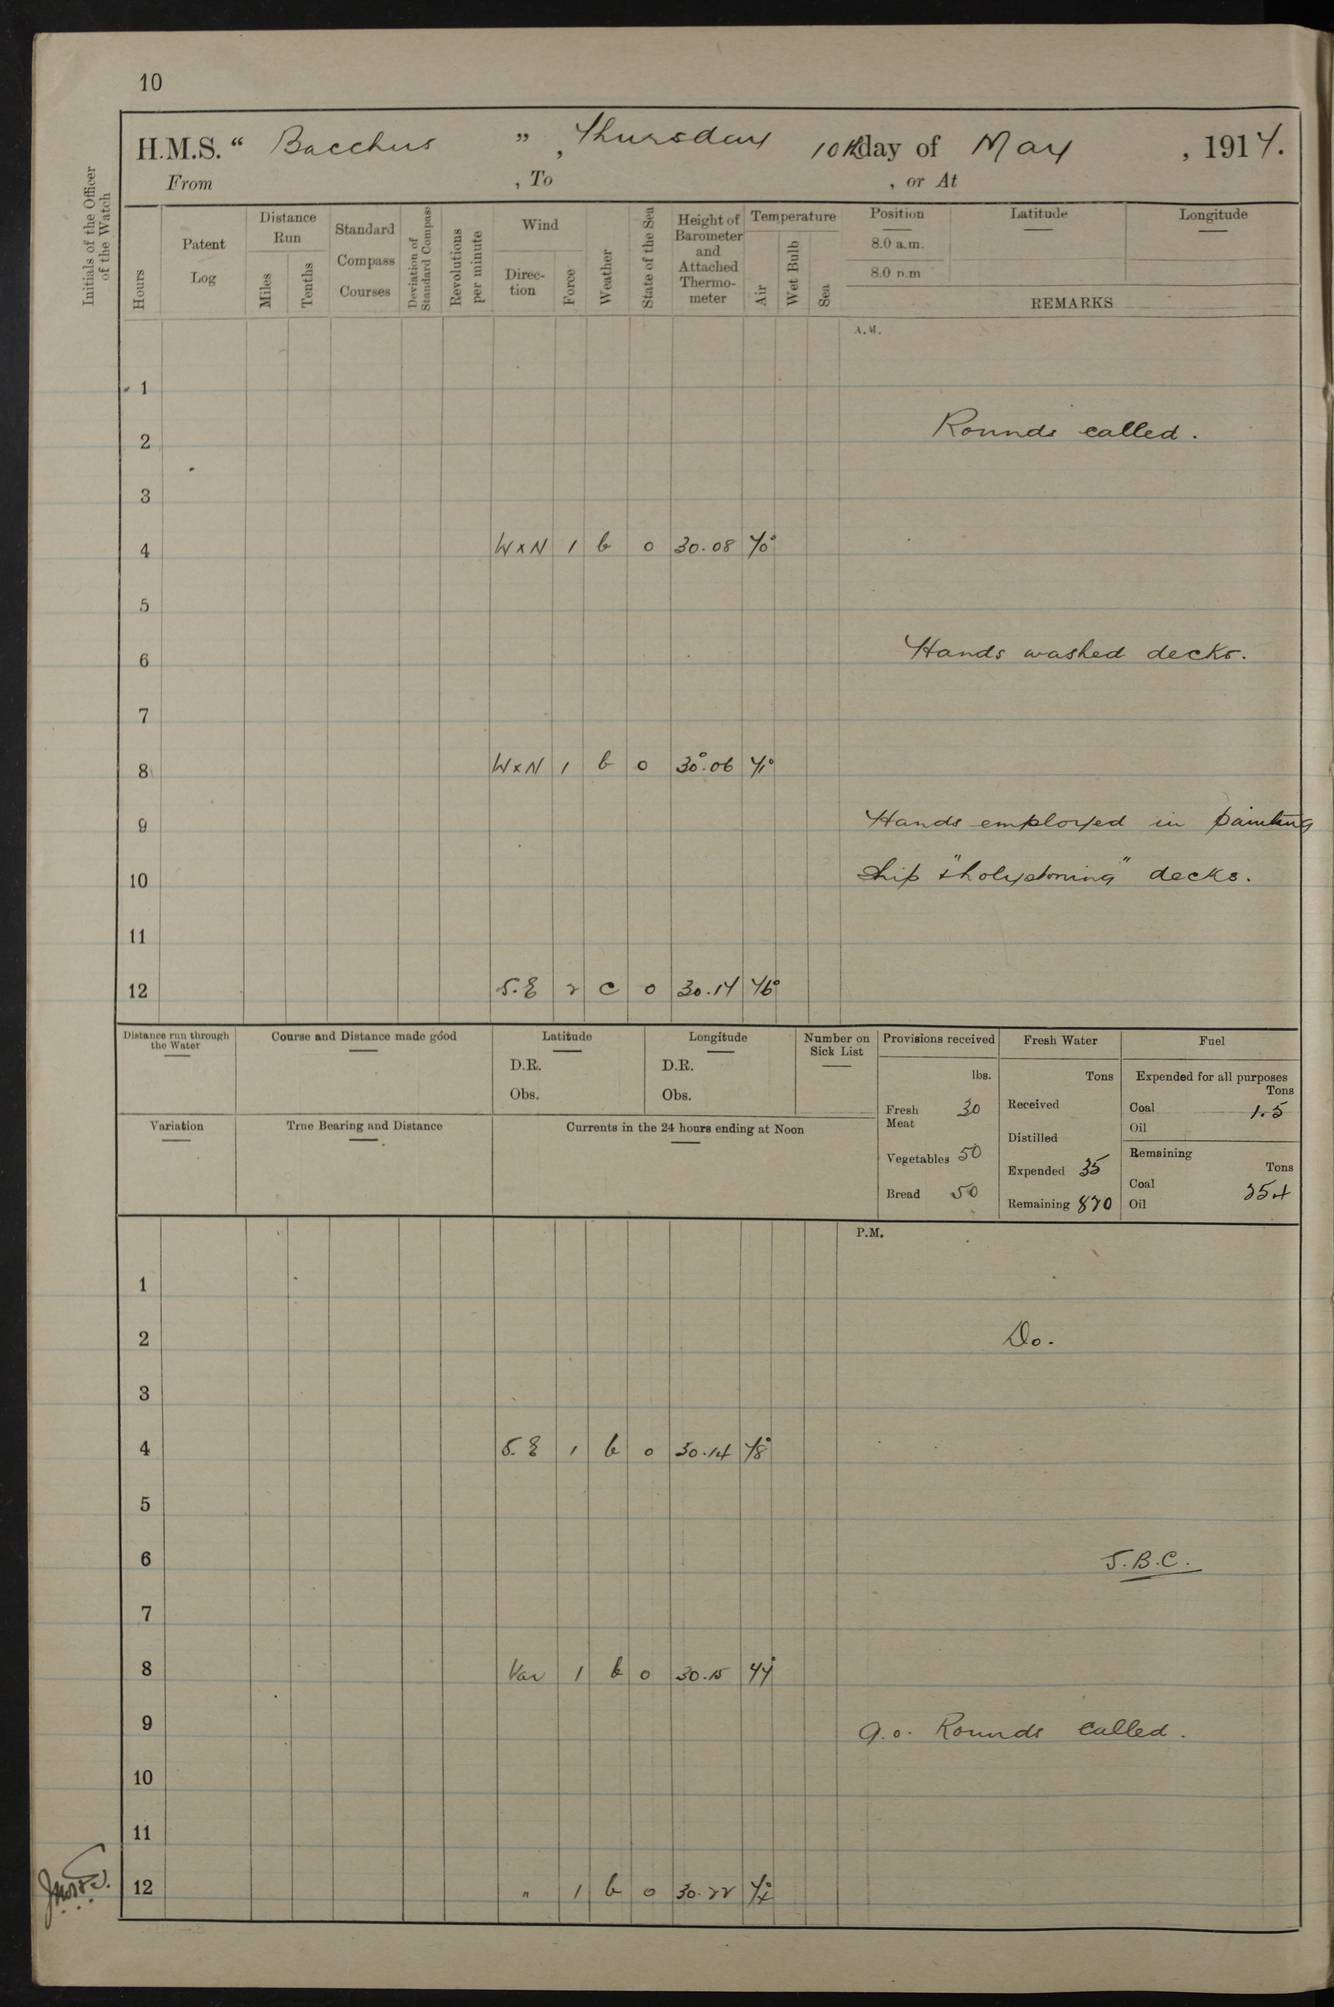 10
H.M.S. “ Bacchus ” , Thursday 10th day of May , 1917.
From , To , or At
Initials of the Officer of the Watch
Hours
Patent Log
Distance Run
Miles
Tenths
Standard Compass Courses
Deviation of Standard Compass
Revolutions per minute
Wind
Direction
Force
Weather
State of the Sea
Height of Barometer and Attached Thermometer
Temperature
Air
Wet Bulb
Sea
Position
8.0 a.m.
8.0 p.m
Latitude
Longitude
REMARKS
A.M.
1
2 Rounds called.
3
4 WxN 1 b 0 30.08 70°
5
6 Hands washed decks.
7
8 WxN 1 b 0 30.06 71°
9 Hands employed in painting
10 ship & "holystoning" decks.
11
12 S.E 2 c 0 30.17 76°
Distance run through the Water
Course and Distance made good
Latitude
D.R.
Obs.
Longitude
D.R.
Obs.
Number on Sick List
Variation
True Bearing and Distance
Currents in the 24 hours ending at Noon
Provisions received
lbs.
Fresh Meat 30
Vegetables 50
Bread 50
Fresh Water
Tons
Received
Distilled
Expended 35
Remaining 870
Fuel
Expended for all purposes
Tons
Coal 1.5
Oil
Remaining
Tons
Coal 254
Oil
P.M.
1
2 Do.
3
4 S.E 1 b 0 30.14 78°
5
6 J.B.C.
7
8 Var 1 b 0 30.15 77°
9 9.0. Rounds called.
10
11
12 " 1 b 0 30.22 74°